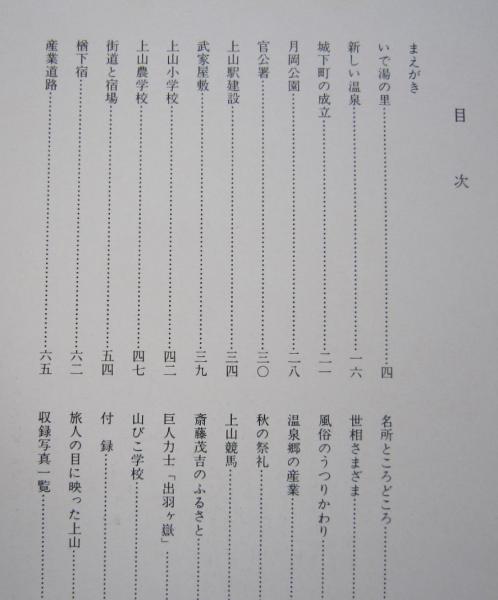 目次
まえがき
いで湯の里……四
新しい温泉……一六
城下町の成立……二一
月岡公園……二八
官公署……三〇
上山駅建設……三四
武家屋敷……三九
上山小学校……四二
上山農学校……四七
街道と宿場……五四
楢下宿……六二
産業道路……六五
名所ところどころ……
世相さまざま……
風俗のうつりかわり……
温泉郷の産業……
秋の祭礼……
上山競馬……
斎藤茂吉のふるさと……
巨人力士「出羽ヶ嶽」……
山びこ学校……
付録……
旅人の目に映った上山……
収録写真一覧……